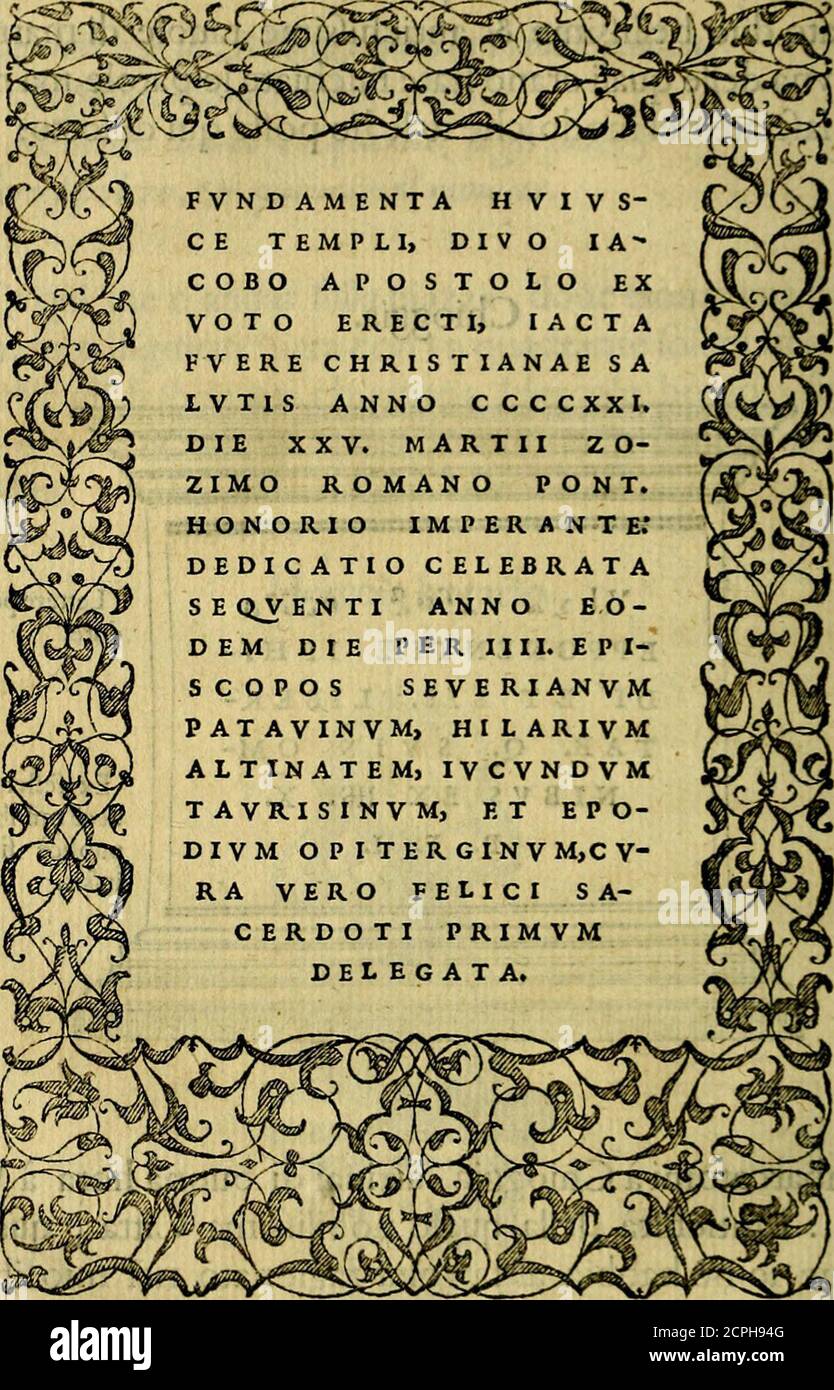 FVNDAMENTA HVIVS-
CE TEMPLI, DIVO IA-
COBO APOSTOLO EX
VOTO ERECTI, IACTA
FVERE CHRISTIANAE SA
LVTIS ANNO CCCCXXI.
DIE XXV. MARTII ZO-
ZIMO ROMANO PONT.
HONORIO IMPERANTE:
DEDICATIO CELEBRATA
SEQVENTI ANNO EO-
DEM DIE PER IIII. EPI-
SCOPOS SEVERIANVM
PATAVINVM, HILARIVM
ALTINATEM, IVCVNDVM
TAVRISINVM, ET EPO-
DIVM OPITERGINVM, CV-
RA VERO FELICI SA-
CERDOTI PRIMVM
DELEGATA.
alamy
Image ID: 2CPH94G
www.alamy.com